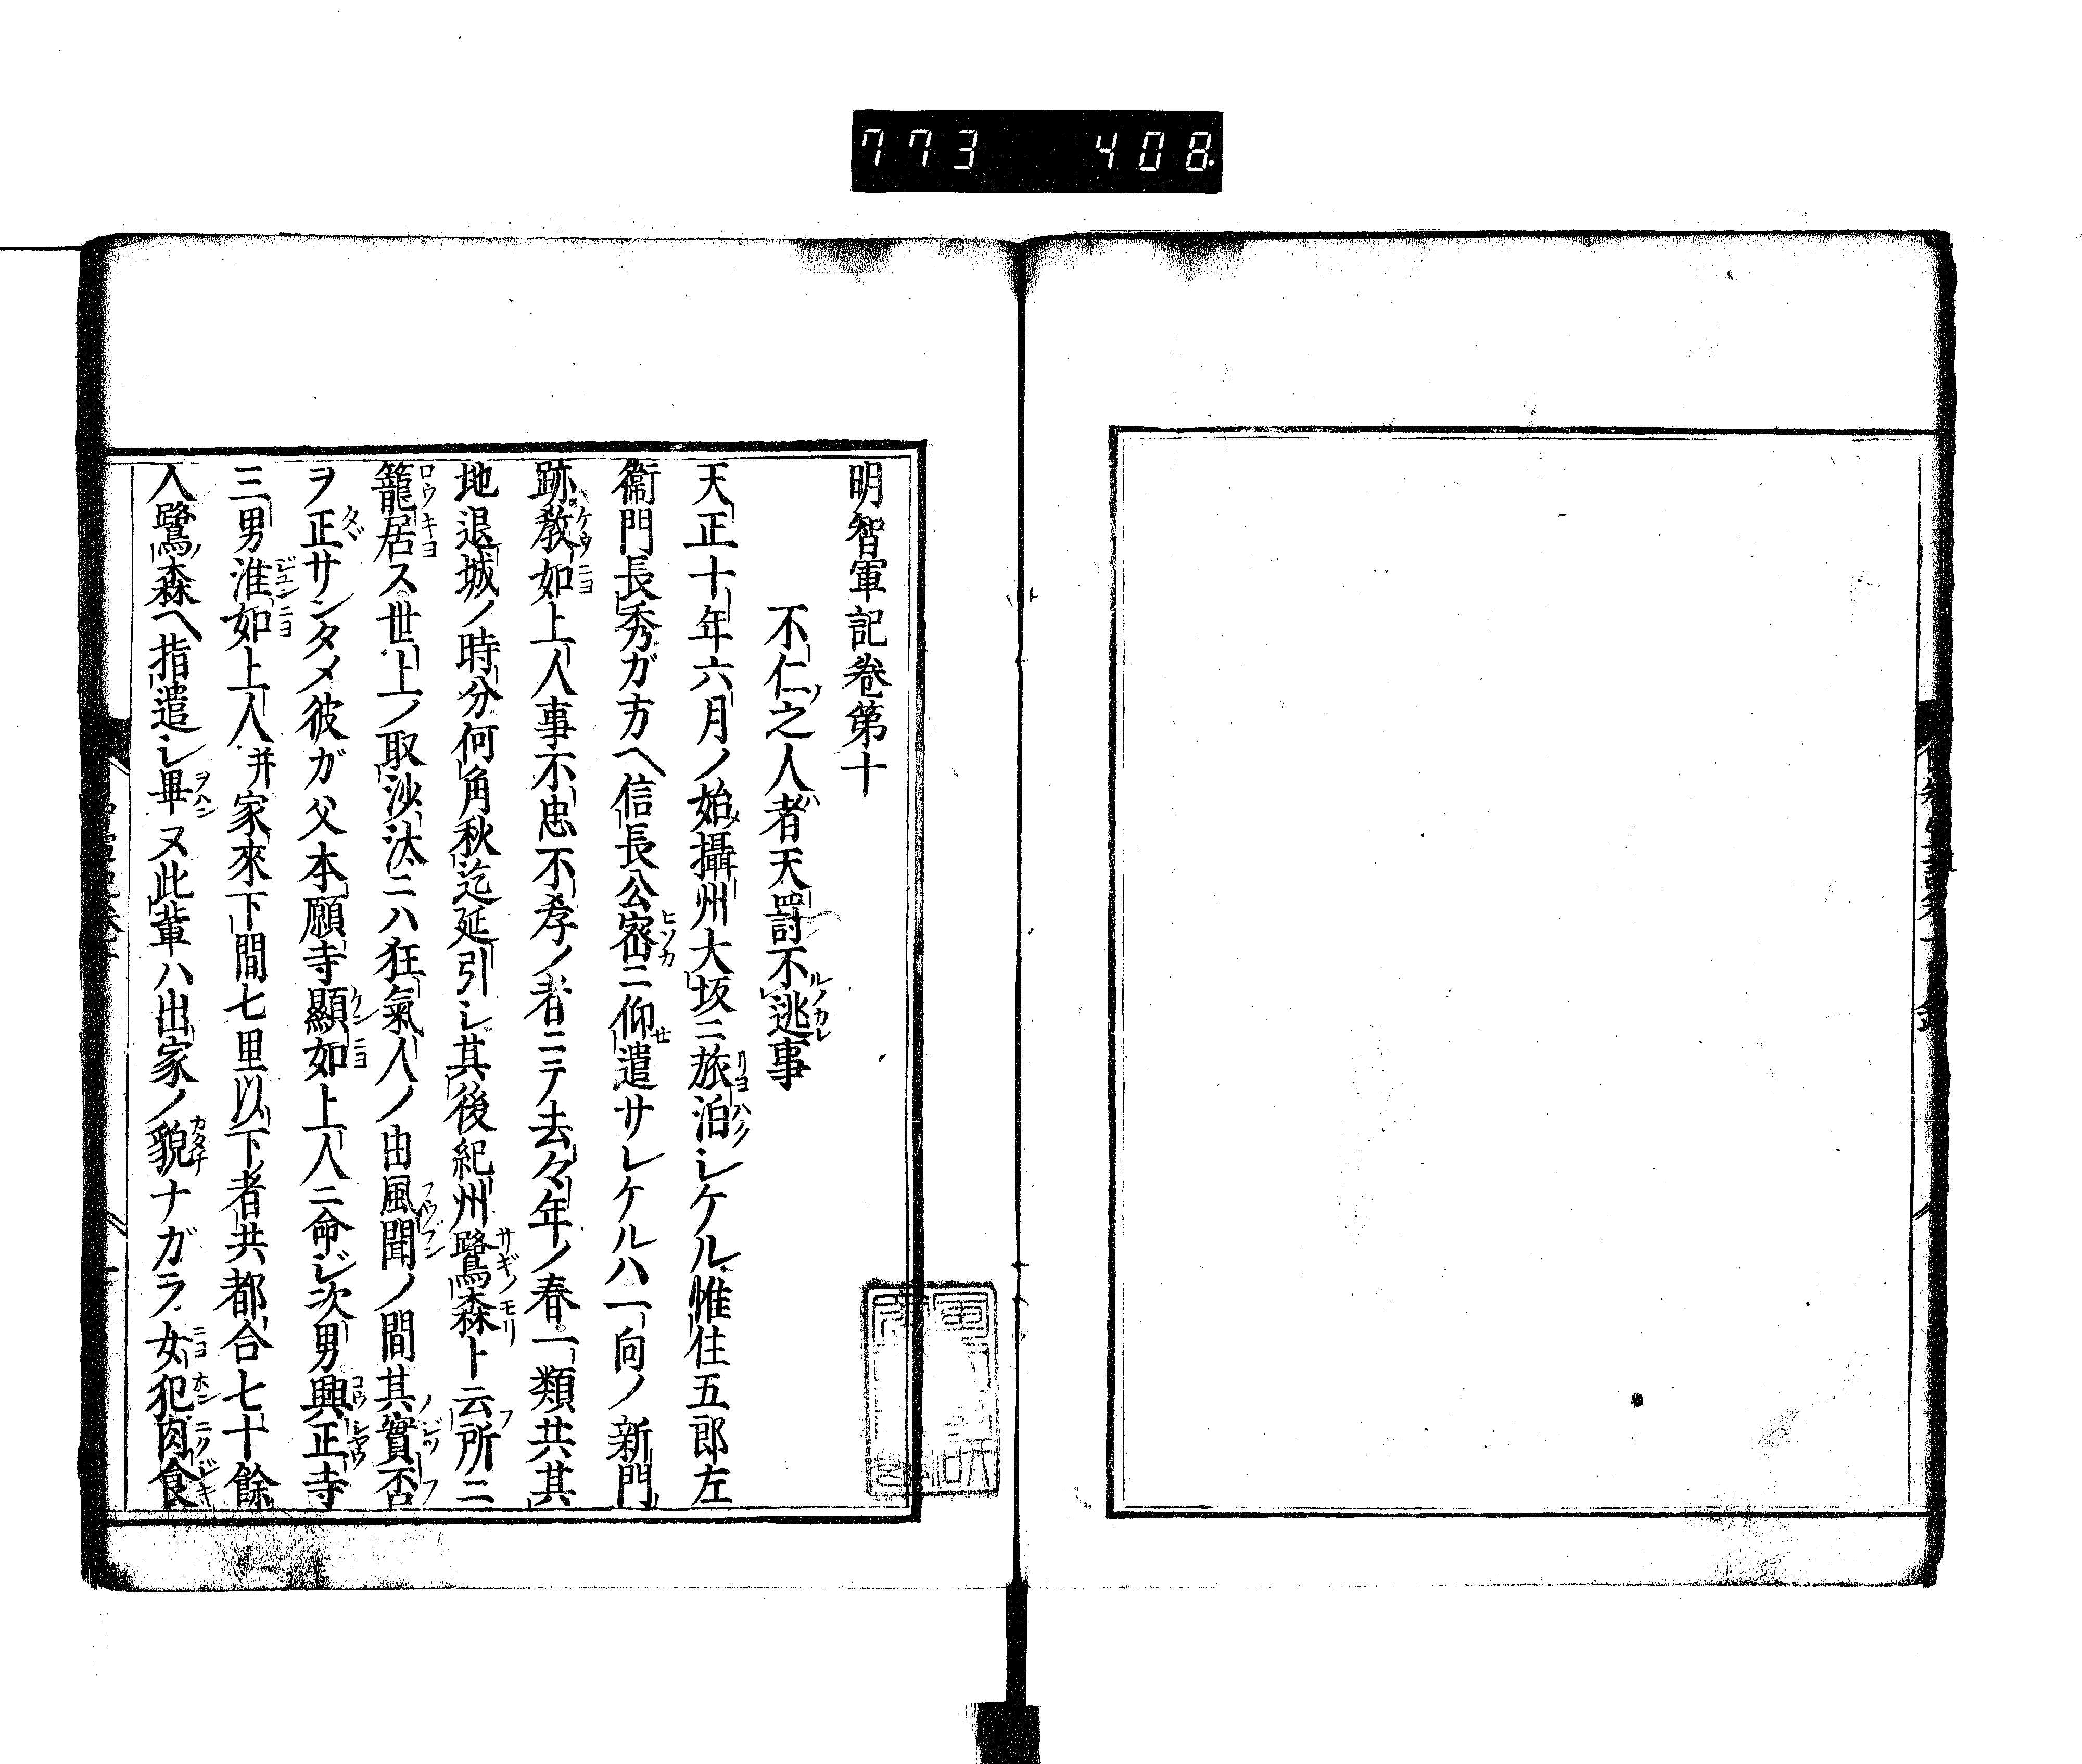 773 408
明智軍記卷第十
不仁之人者天罰不逃事
天正十年六月ノ始攝州大坂ニ旅泊シケル惟住五郎左
衞門長秀ガ方ヘ信長公密ニ仰遣サレケルハ一向ノ新門
跡教如上人事不忠不孝ノ者ニテ去々年ノ春一類共其
地退城ノ時分何角秋迄延引シ其後紀州鷺森ト云所ニ
籠居ス世上ノ取沙汰ニハ狂氣人ノ由風聞ノ間其實否
ヲ正サンタメ彼ガ父本願寺顯如上人ニ命ジ次男興正寺
三男准如上人并家來下間七里以下者共都合七十餘
人鷺森ヘ指遣シ畢ヌ此輩ハ出家ノ貌ナガラ女犯肉食